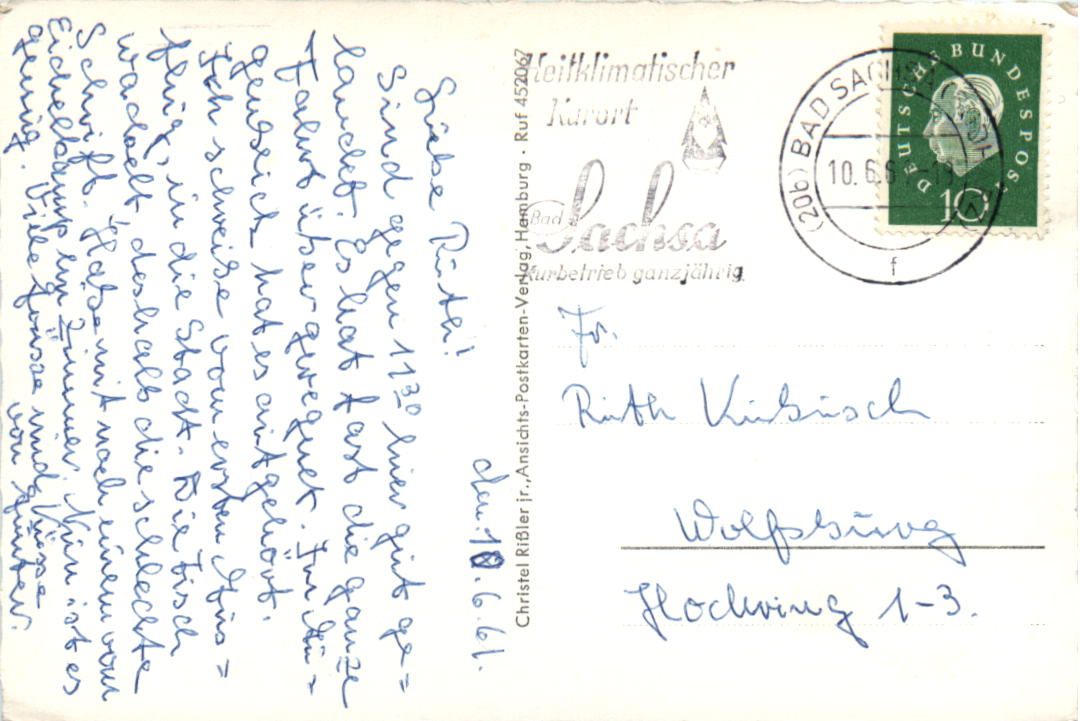 den 10.6.61.
Liebe Ruth!
Sind gegen 11 30 hier gut ge=
landet. Es hat fast die ganze
Fahrt über geregnet. Im Au=
genblick hat es aufgehört.
Ich schreibe vom ersten Aus=
flug, in die Stadt. Die Tisch
wackelt deshalb die schlechte
Schrift. Habe mit noch einem vom
Eichelkamp ein Zimmer. Nun ist es
genug. Viele Grüsse und Küsse
von Günter.
Christel Rißler jr., Ansichts-Postkarten-Verlag, Hamburg · Ruf 452067
Heilklimatischer
Kurort
Bad
Sachsa
Kurbetrieb ganzjährig
(20b) BAD SACHSA
10.6.61-19
f
DEUTSCHE BUNDESPOST
10
Fr.
Ruth
Wolfsburg
Hochring 1-3.